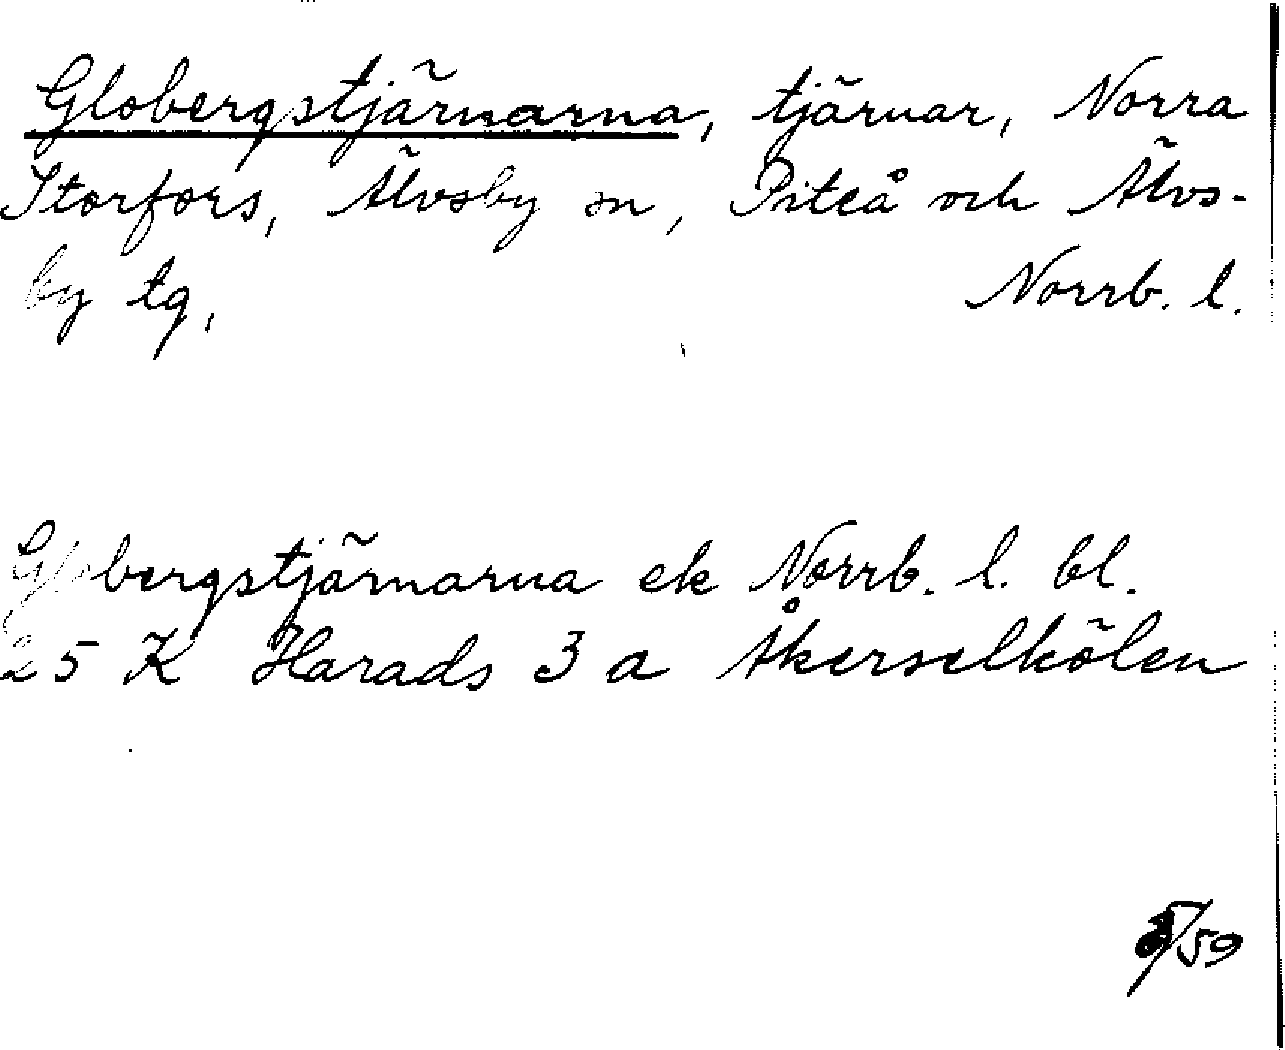 Globergstjärnarna, tjärnar, Norra
Storfors, Älvsby sn, Piteå och Älvs-
by tg, Norrb. l.
Globergstjärnarna ek Norrb. l. bl.
25 K Harads 3 a Åkerselkölen
/59